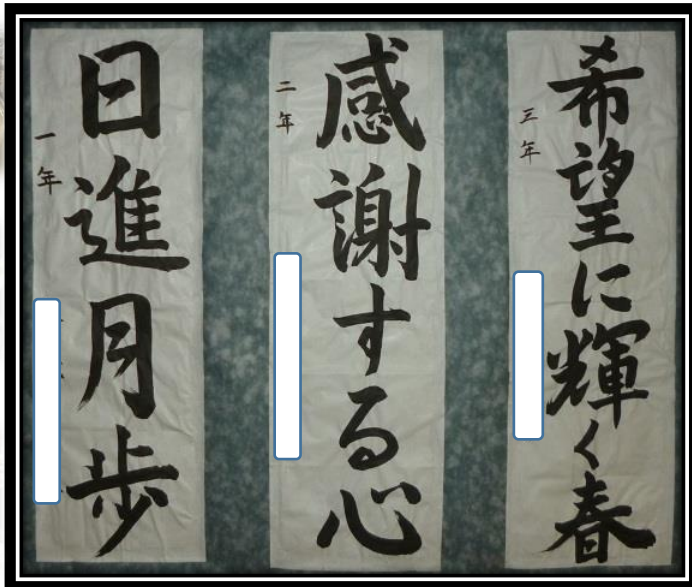 希望に輝く春
三年
感謝する心
二年
日進月歩
一年